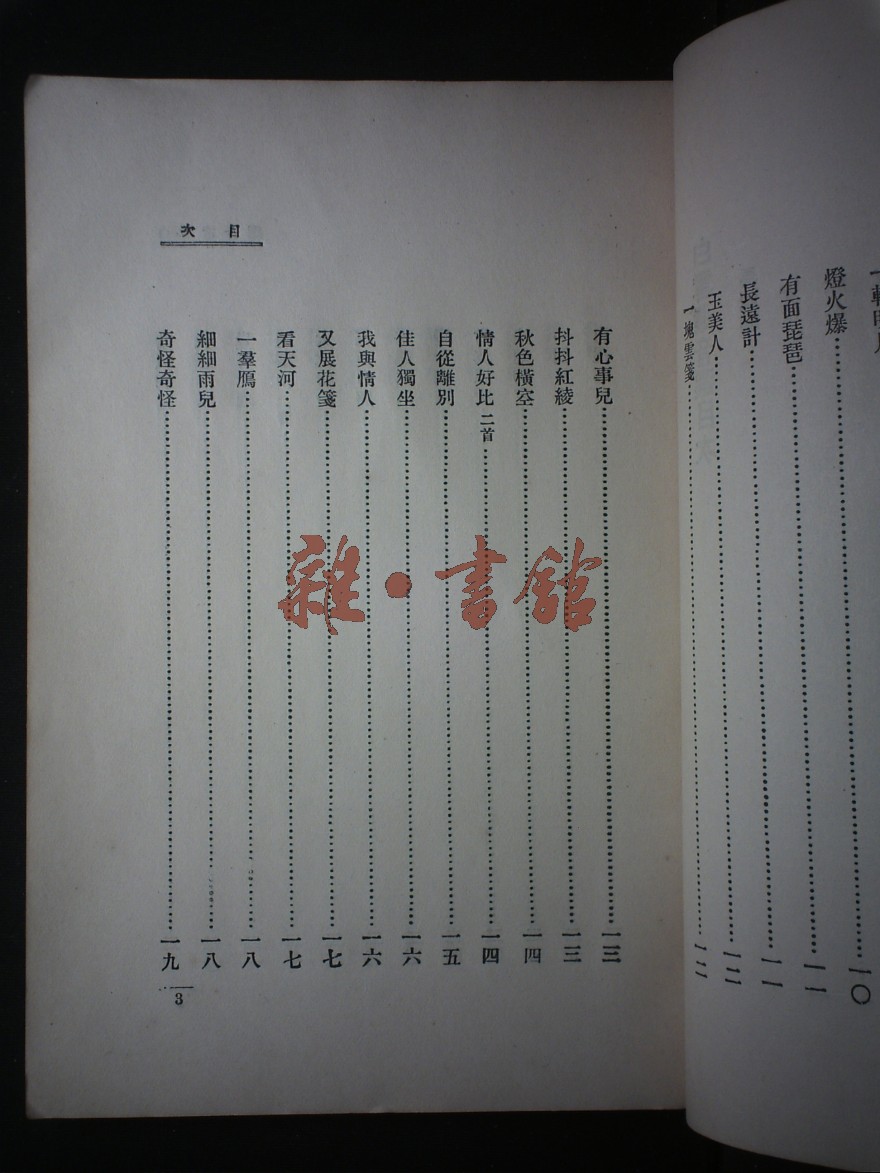 燈火爆……一〇
有面琵琶……一一
長遠計……一一
玉美人……一二
一塊雲箋……一二
目次
有心事兒……一三
抖抖紅綾……一三
秋色橫空……一四
情人好比 二首……一四
自從離別……一五
佳人獨坐……一六
我與情人……一六
又展花箋……一七
看天河……一七
一羣鴈……一八
細細雨兒……一八
奇怪奇怪……一九
3
雜·書館